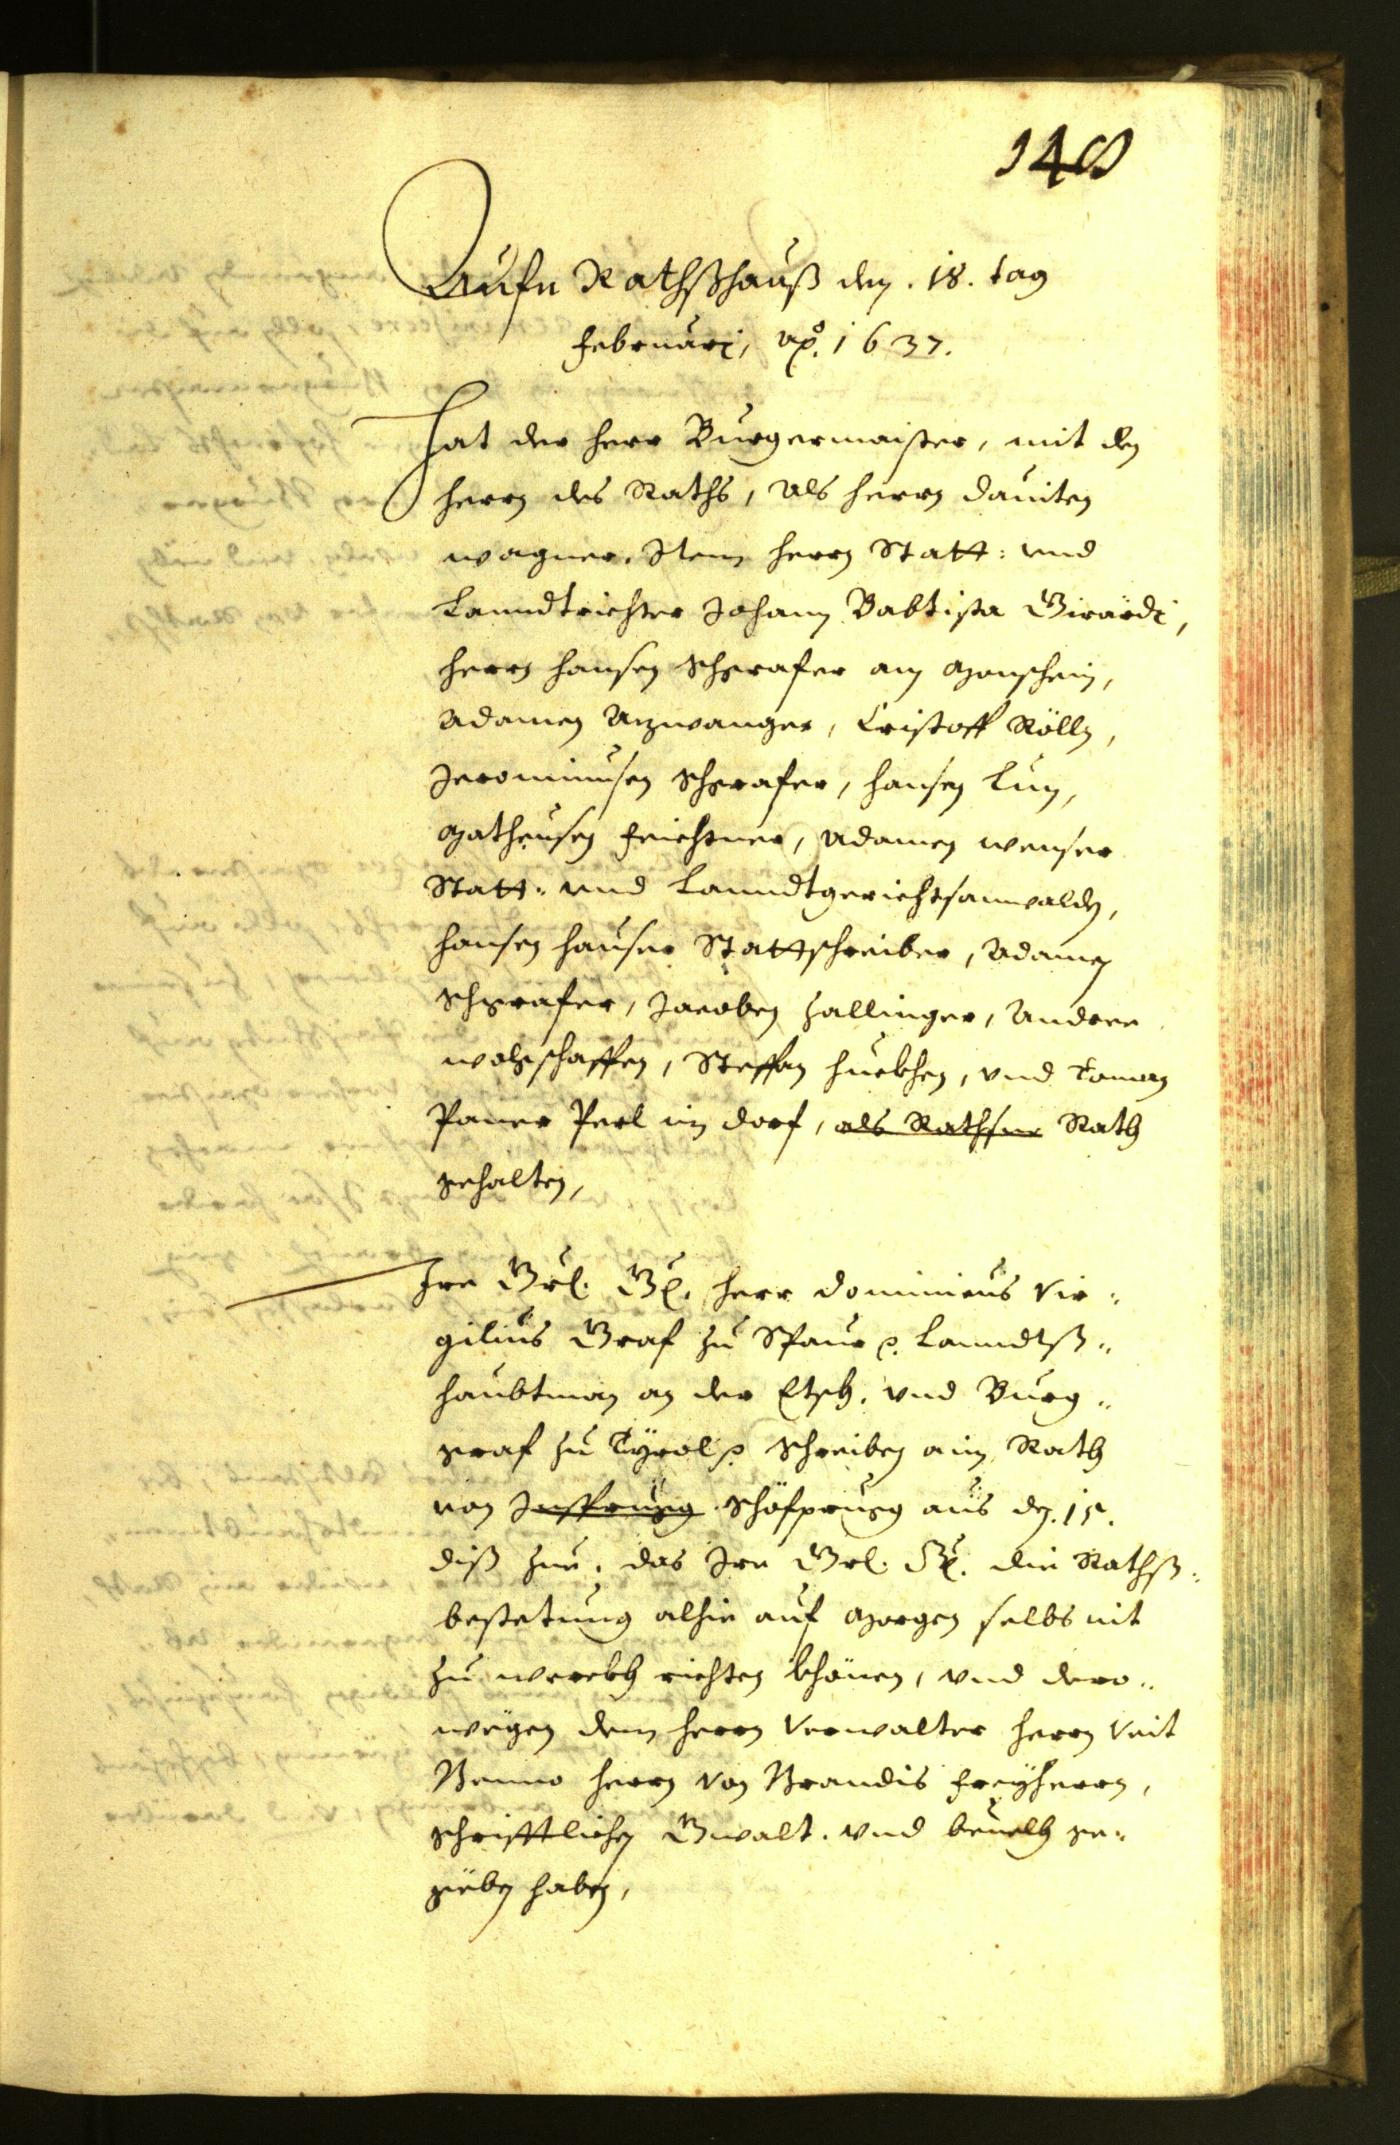 Aufn Rathßhauß den .18. tag
Februarj, ao. 1637.
Hat der herr Burgermaister, mit den
herrn des Raths, als herrn dauiten
wagner. Item herrn Statt: vnd
Lanndtrichter Johann Babtista Girardi,
herrn hansen Schgrafer am Monschein,
Adamen Azwanger, Cristoff Rölln,
Jeronimusen Schgrafer, hansen Lun,
Matheusen Feichtner, Adamen wenser
Statt: vnd Lanndtgerichtsanwalden,
hansen hauser Stattschreiber, Adamen
Schgrafer, Jacoben Zallinger, Andree
wolgschaffen, Steffan huebhen, vnd Toman
Paurr Perl im dorf, als Rathsur Rath
gehalten,
Ire Grl. Gl. herr Dominicus Vir:
gilius Graf zu Spaur Lanndtß„
haubtman an der Etsch. vnd Burg„
graf zu Tyrol schreiben aim Rath
von Insprugg Schöfprugg aus den .15.
diß zue. das Ire Grl. Gl. die Rathß:
besetung alhie auf Morgen selbs nit
zu werckh richten khönen, vnd dero„
wegen dem herrn Verwalter herrn Veit
Benno herrn von Brandis Freyherrn,
schrifftlichen Gwalt. vnd beuelh ge„
geben haben,